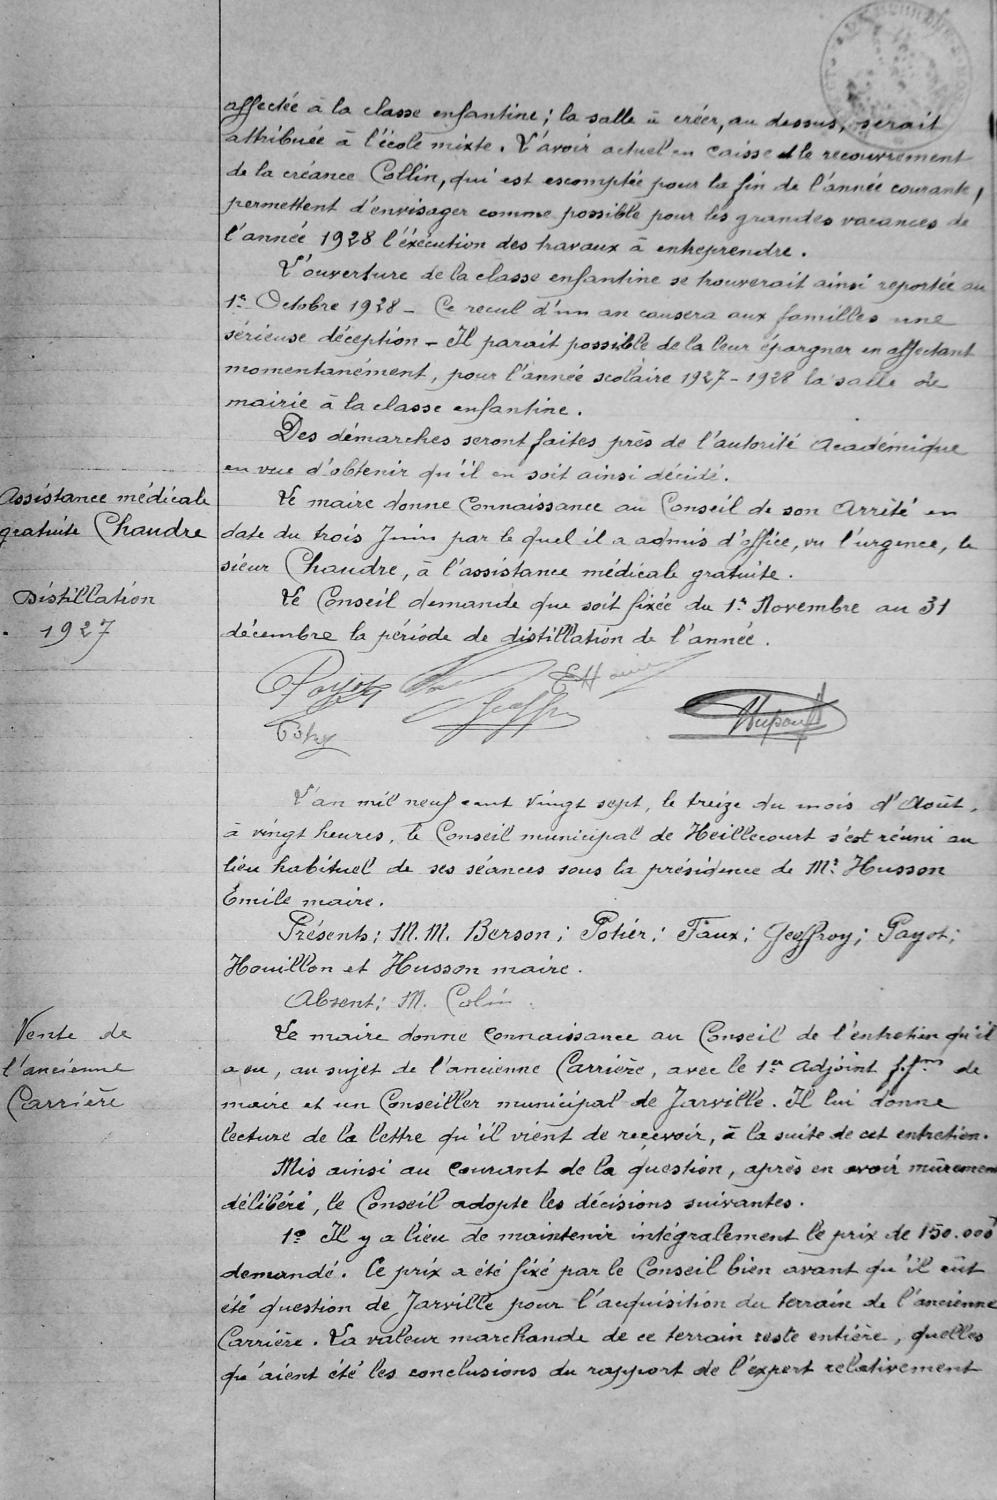 affectée à la classe enfantine ; la salle à créer, au dessus, serait
attribuée à l'école mixte. L'avoir actuel en caisse et le recouvrement
de la créance Collin, qui est escomptée pour la fin de l'année courante,
permettent d'envisager comme possible pour les grandes vacances de
l'année 1928 l'éxécution des travaux à entreprendre.
L'ouverture de la classe enfantine se trouverait ainsi reportée au
1er Octobre 1928 - Ce recul d'un an causera aux familles une
sérieuse déception - Il parait possible de la leur épargner en affectant
momentanément, pour l'année scolaire 1927-1928 la salle de
mairie à la classe enfantine.
Des démarches seront faites près de l'autorité Académique
en vue d'obtenir qu'il en soit ainsi décidé.
Assistance médicale
gratuite Chaudre
Le maire donne connaissance au Conseil de son Arrêté en
date du trois Juin par le quel il a admis d'office, vu l'urgence, le
sieur Chaudre, à l'assistance médicale gratuite.
Distillation
1927
Le Conseil demande que soit fixée du 1er Novembre au 31
décembre la période de distillation de l'année.
L'an mil neuf cent vingt sept, le treize du mois d'Août,
à vingt heures, le Conseil municipal de Heillecourt s'est réuni au
lieu habituel de ses séances sous la présidence de Mr Husson
Émile maire.
Présents ; M.M. Berson ; Potier ; Faux ; Geoffroy ; Payot ;
Houillon et Husson maire.
Absent ; M. Colin.
Vente de
l'ancienne
Carrière
Le maire donne connaissance au Conseil de l'entretien qu'il
a eu, au sujet de l'ancienne Carrière, avec le 1er Adjoint f.fons de
maire et un Conseiller municipal de Jarville. Il lui donne
lecture de la lettre qu'il vient de recevoir, à la suite de cet entretien.
Mis ainsi au courant de la question, après en avoir mûrement
délibéré, le Conseil adopte les décisions suivantes.
1o Il y a lieu de maintenir intégralement le prix de 150.000f
demandé. Ce prix a été fixé par le Conseil bien avant qu'il eût
été question de Jarville pour l'acquisition du terrain de l'ancienne
Carrière. La valeur marchande de ce terrain reste entière, quelles
qu'aient été les conclusions du rapport de l'expert relativement